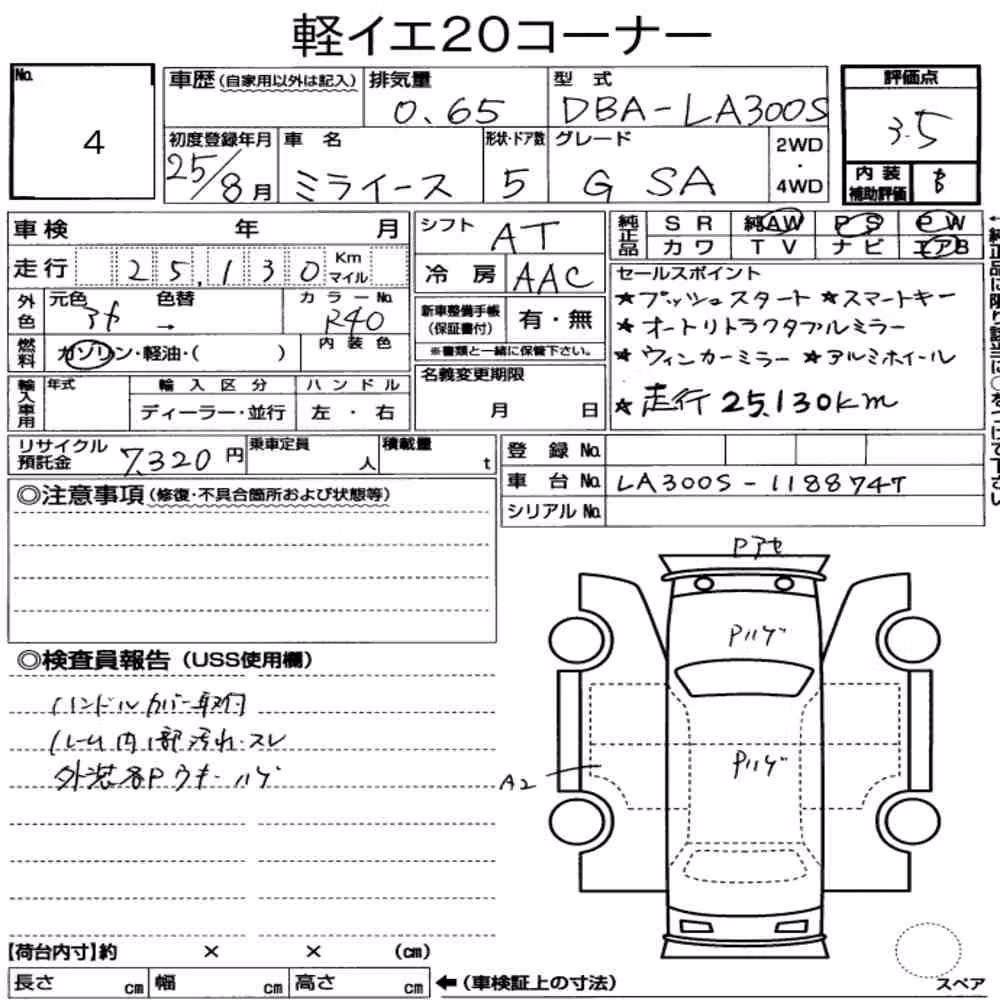 軽イエ20コーナー
No.
4
車歴(自家用以外は記入)
排気量
0.65
型式
DBA-LA300S
評価点
3.5
初度登録年月
25/8月
車名
ミライース
形状・ドア数
5
グレード
G SA
2WD
・
4WD
内装
補助評価
車検 年 月
走行 25,130 Km
マイル
シフト
AT
冷房 AAC
純正品
SR 純AW PS PW
カワ TV ナビ エアB
←純正品に限り該当に○をつけて下さい
セールスポイント
★プッシュスタート ★スマートキー
★オートリトラクタブルミラー
★ウィンカーミラー ★アルミホイール
★走行 25,130km
外色
元色 色替
→
カラーNo.
R40
燃料
ガソリン・軽油・( )
内装色
新車整備手帳
(保証書付)
有・無
※書類と一緒に保管下さい。
輸入車用
年式
輸入区分
ハンドル
ディーラー・並行
左・右
名義変更期限
月 日
リサイクル
預託金
7,320円
乗車定員
人
積載量
t
登録No.
車台No. LA300S-1188747
シリアルNo.
◎注意事項(修復・不具合箇所および状態等)
◎検査員報告(USS使用欄)
ハンドルカバー取付
ルーム内1部汚れ・スレ
外装各Pウキ・ハゲ
Pアセ
Pハゲ
Pハゲ
A2
【荷台内寸】約 × × (cm)
長さ cm 幅 cm 高さ cm ←(車検証上の寸法)
スペア